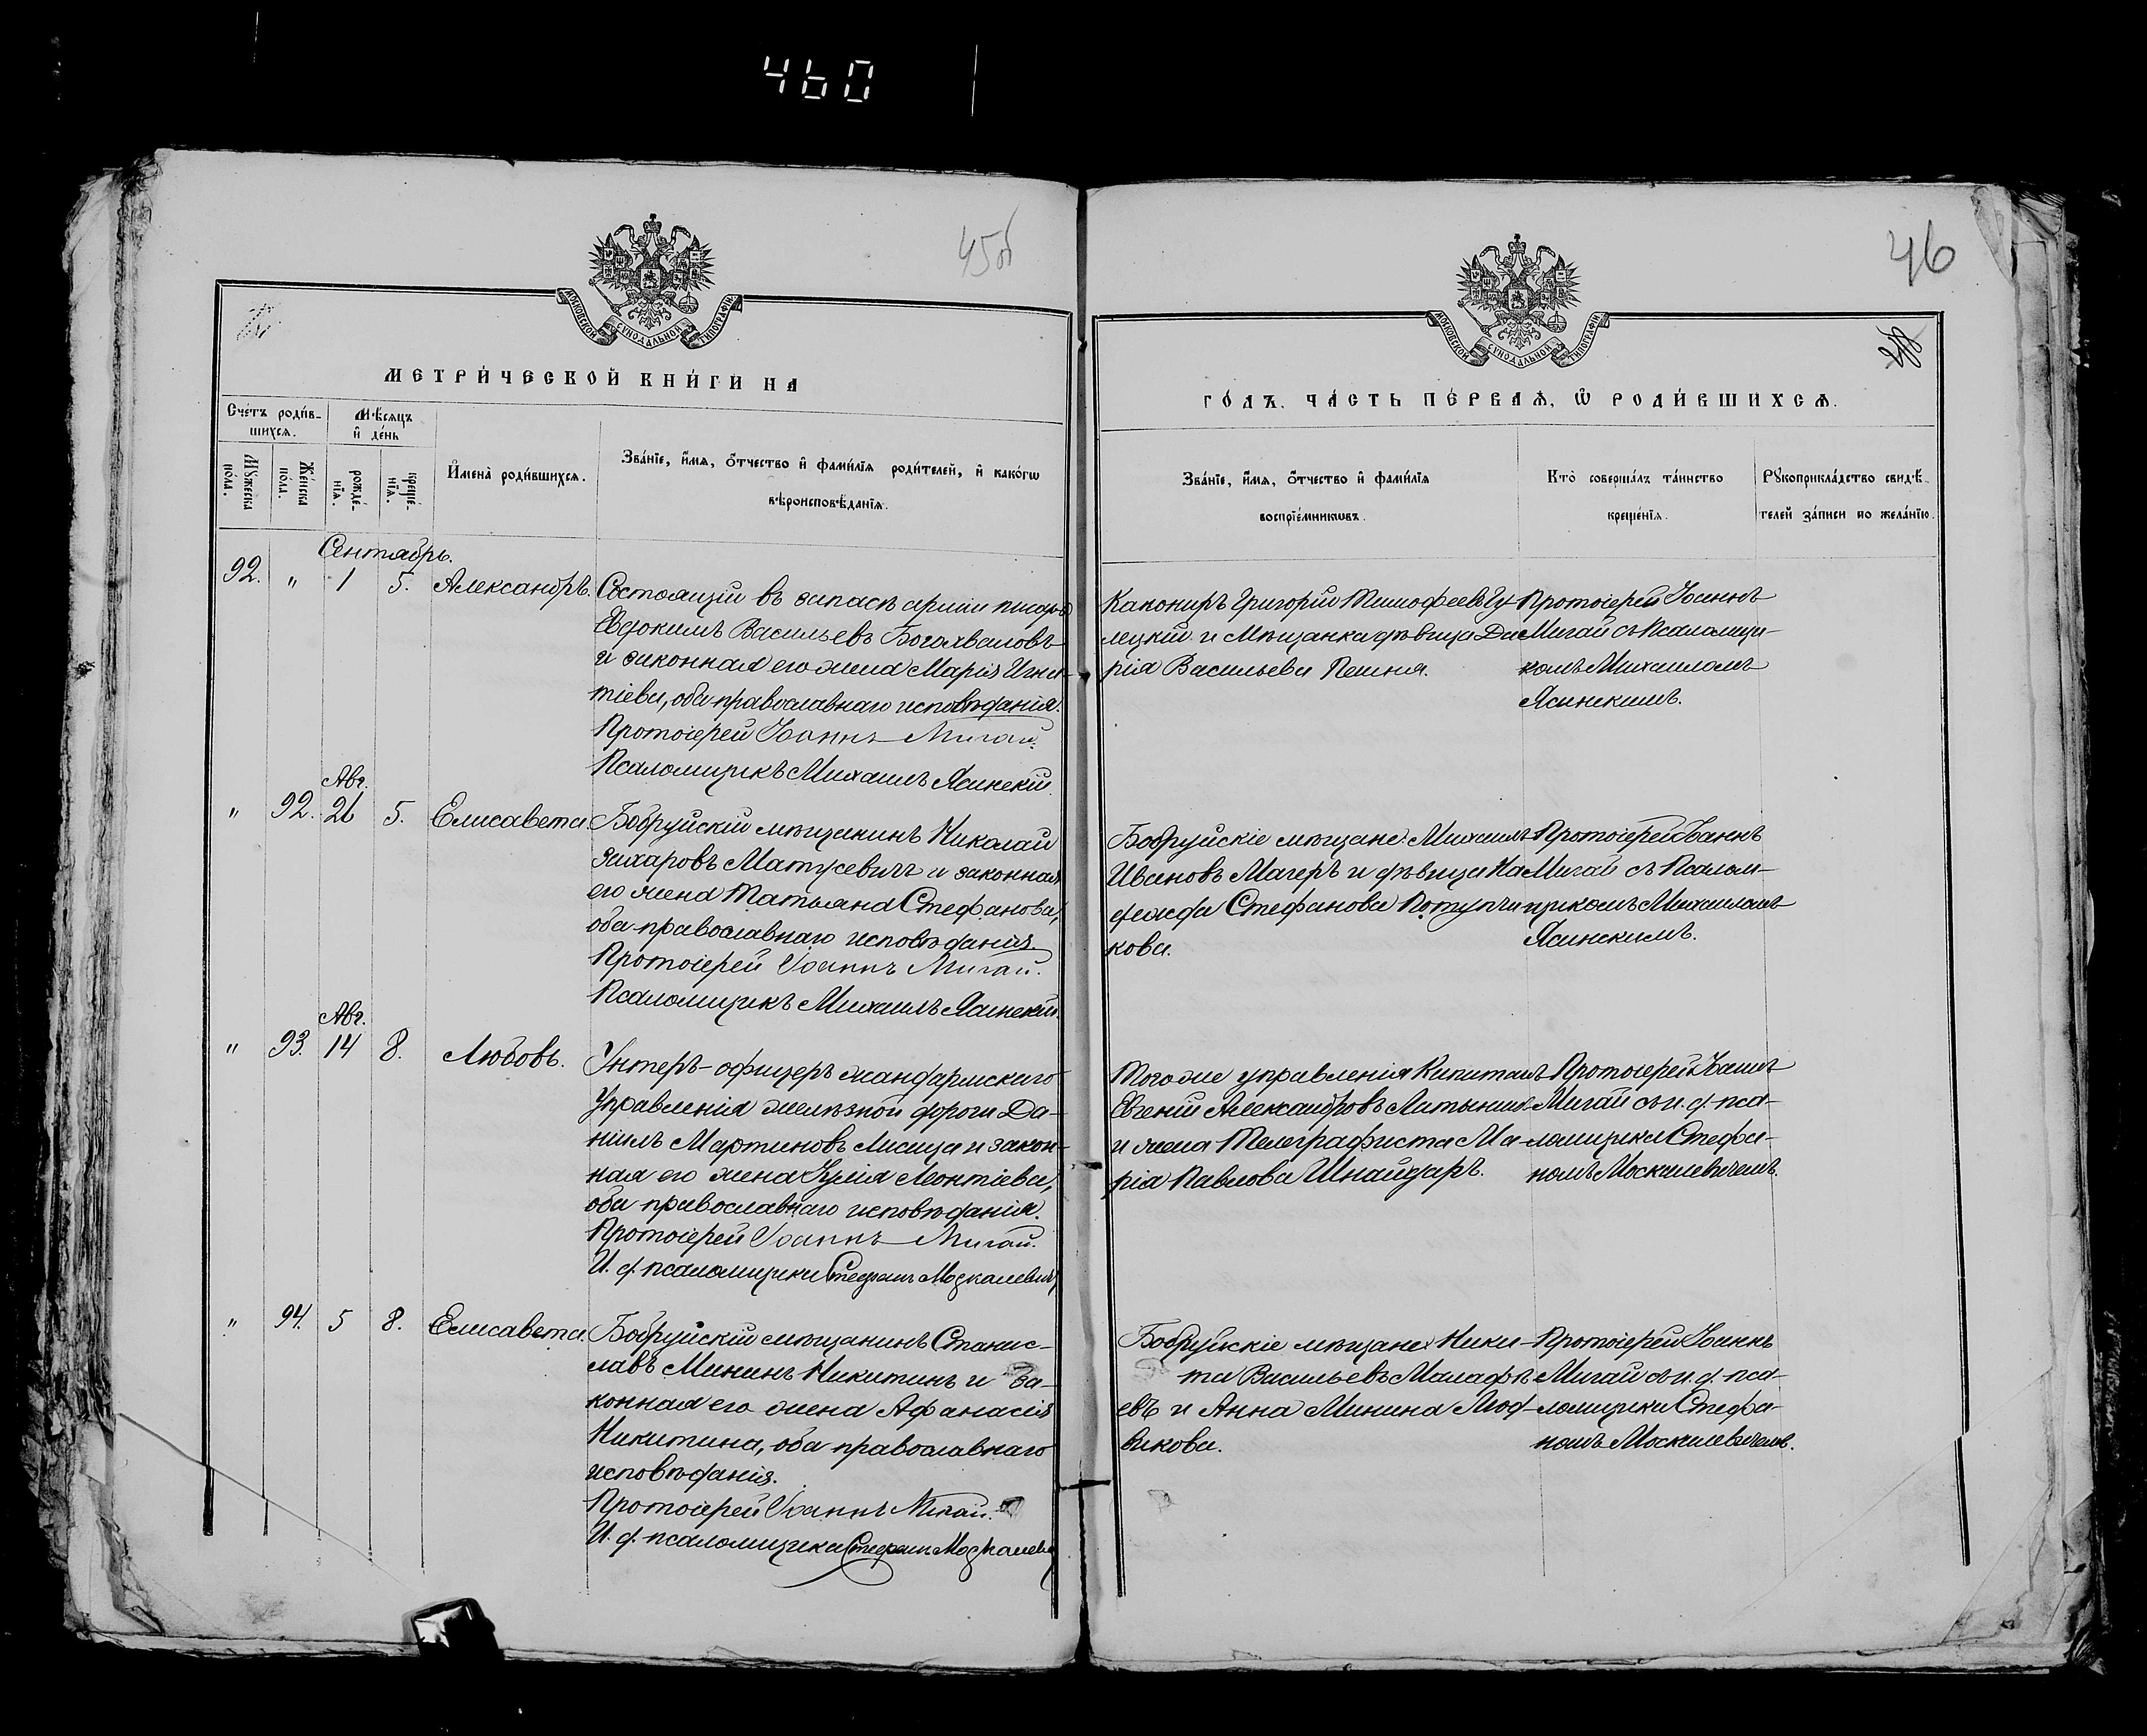 460
45об
46
МОСКОВСКОЙ СУНОДАЛЬНОЙ ТИПОГРАФІИ
МЕТРИ́ЧЕСКОЙ КНИ́ГИ НА
Сче́тъ роди́в-
шихся.
Мѣсяцъ
и҆ де́нь
Му́жеска
по́ла.
Же́нска
по́ла.
рожде́-
нїѧ.
креще́-
нїѧ.
И҆мена̀ роди́вшихсѧ.
Зва́нїе, и҆́мѧ, ѻ҆́тчество и҆ фами́лїѧ роди́телей, и҆ како́гѡ
вѣроисповѣ́данїѧ.
Сентябрь.
92. " 1 5. Александръ.
Состоящій въ запасѣ арміи писарь
Евдокимъ Васильевъ Богохваловъ
и законная его жена Марія Игна-
тіева, оба православнаго исповѣданія.
Протоіерей Іоаннъ Мигай.
Псаломщикъ Михаилъ Ясинскій.
Авг.
" 92. 26 5. Елисавета.
Бобруйскій мѣщанинъ Николай
Захаровъ Матусевичъ и законная
его жена Татьяна Стефанова,
оба православнаго исповѣданія
Протоіерей Іоаннъ Мигай.
Псаломщикъ Михаилъ Ясинскій.
Авг.
" 93. 14 8. Любовь.
Унтеръ-офицеръ жандармскаго
Управленія желѣзной дороги Да-
ніилъ Мартиновъ Лисица и закон-
ная его жена Юлія Леонтіева,
оба православнаго исповѣданія.
Протоіерей Іоаннъ Мигай.
И. д. псаломщика Стефанъ Москалевичъ
" 94. 5 8. Елисавета.
Бобруйскій мѣщанинъ Станис-
лавъ Мининъ Никитинъ и за-
конная его жена Афанасія
Никитина, оба православнаго
исповѣданія.
Протоіерей Іоаннъ Мигай.
И. д. псаломщика Стефанъ Москалевичъ
МОСКОВСКОЙ СУНОДАЛЬНОЙ ТИПОГРАФІИ
ГО́ДЪ. ЧА́СТЬ ПЕ́РВАѦ, Ѡ҆ РОДИ́ВШИХСѦ.
Зва́нїе, и҆́мѧ, ѻ҆́тчество и҆ фами́лїѧ
воспрїе́мникѡвъ.
Кто̀ соверша́лъ та́инство
креще́нїѧ.
Рꙋкоприкла́дство свидѣ́-
телей за́писи по жела́нїю.
Канониръ Григорій Тимофеевъ Гу-
лецкій и Мѣщанка дѣвица Да-
рія Васильева Пешня.
Протоіерей Іоаннъ
Мигай съ Псаломщи-
комъ Михаиломъ
Ясинскимъ.
Бобруйскіе мѣщане: Михаилъ
Ивановъ Магеръ и дѣвица На-
дежда Стефанова Потупчи-
кова.
Протоіерей Іоаннъ
Мигай съ Псалом-
щикомъ Михаиломъ
Ясинскимъ.
Того же управленія Капитанъ
Евгеній Александровъ Латынинъ
и жена Телеграфиста Ма-
рія Павлова Шнайдаръ.
Протоіерей Іоаннъ
Мигай съ и. д. пса-
ломщика Стефа-
номъ Москалевичемъ.
Бобруйскіе мѣщане: Ники-
та Васильевъ Малафѣ-
евъ и Анна Минина Люд-
викова.
Протоіерей Іоаннъ
Мигай съ и. д. пса-
ломщика Стефа-
номъ Москалевичемъ.